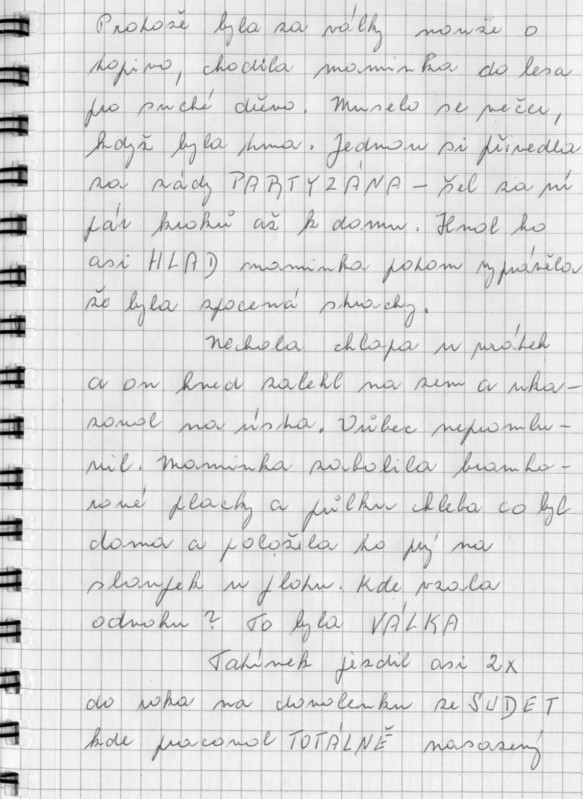 Protože byla za války nouze o
topivo, chodila maminka do lesa
pro suché dřevo. Muselo se večer,
když byla tma. Jednou si přivedla
za zády PARTYZÁNA – šel za ní
pár kroků až k domu. Hnal ho
asi HLAD maminka potom vyprávěla
že byla zpocená strachy.
Nechala chlapa u vrátek
a on hned zalehl na zem a uka-
zoval na ústa. Vůbec nepromlu-
vil. Maminka zabalila brambo-
rové placky a půlku chleba co byl
doma a položila ho prý na
sloupek u plotu. Kde vzala
odvahu? To byla VÁLKA
Tatínek jezdil asi 2x
do roka na dovolenku ze SUDET
kde pracoval TOTÁLNĚ nasazený